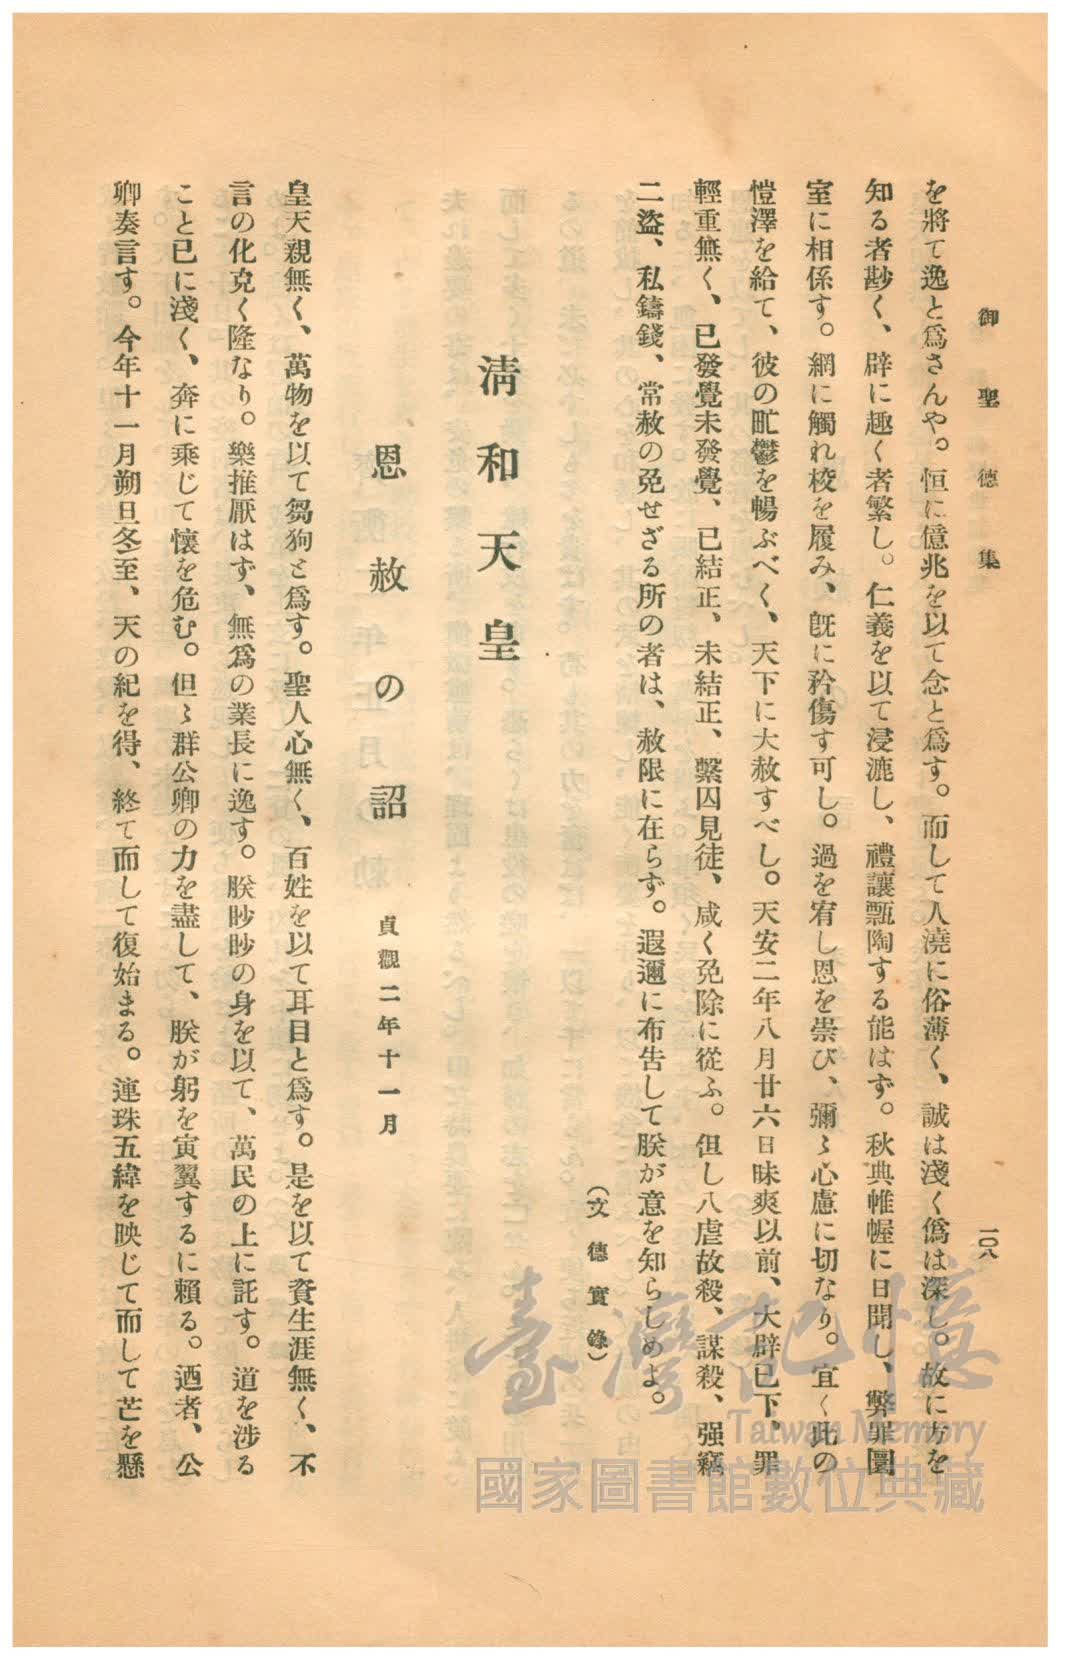 御聖德集
一〇八
を將て逸と爲さんや。恒に億兆を以て念と爲す。而して人澆に俗薄く、誠は淺く僞は深し。故に方を
知る者尠く、辟に趣く者繁し。仁義を以て浸漉し、禮讓甄陶する能はず。秋典帷幄に日聞し、弊罪圜
室に相係す。網に觸れ校を履み、既に矜傷す可し。過を宥し恩を崇び、彌〻心慮に切なり。宜く此の
愷澤を給て、彼の氓鬱を暢ぶべく、天下に大赦すべし。天安二年八月廿六日昧爽以前、大辟已下、罪
輕重無く、已發覺未發覺、已結正、未結正、繫囚見徒、咸く免除に從ふ。但し八虐故殺、謀殺、强竊
二盜、私鑄錢、常赦の免せざる所の者は、赦限に在らず。遐邇に布告して朕が意を知らしめよ。
（文德實錄）
淸和天皇
恩赦の詔　貞觀二年十一月
皇天親無く、萬物を以て芻狗と爲す。聖人心無く、百姓を以て耳目と爲す。是を以て資生涯無く、不
言の化克く隆なり。樂推厭はず、無爲の業長に逸す。朕眇眇の身を以て、萬民の上に託す。道を涉る
こと已に淺く、奔に乘じて懷を危む。但〻群公卿の力を盡して、朕が躬を寅翼するに賴る。迺者、公
卿奏言す。今年十一月朔旦冬至、天の紀を得、終て而して復始まる。連珠五緯を映じて而して芒を懸
臺灣記憶
Taiwan Memory
國家圖書館數位典藏